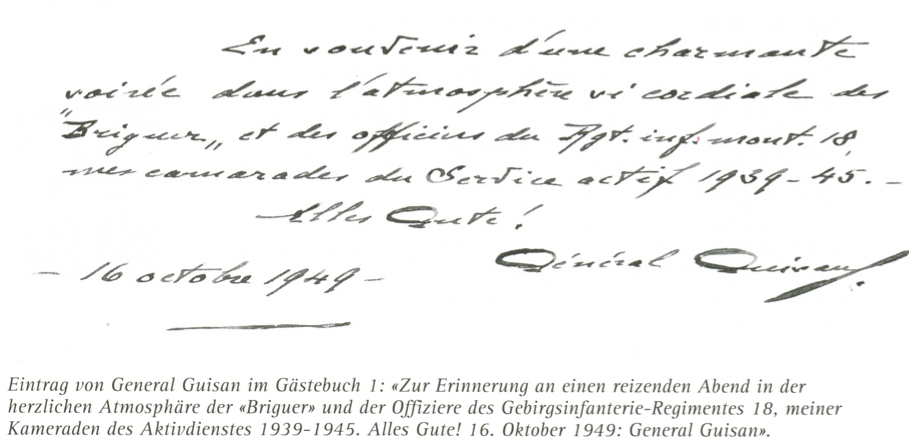 En souvenir d'une charmante
soirée dans l'atmosphère si cordiale des
"Briguer„ et des officiers du Rgt. inf. mont. 18,
mes camarades du Service actif 1939-45. –
Alles Gute!
Général Guisan.
– 16 octobre 1949 –
Eintrag von General Guisan im Gästebuch 1: «Zur Erinnerung an einen reizenden Abend in der
herzlichen Atmosphäre der «Briguer» und der Offiziere des Gebirgsinfanterie-Regimentes 18, meiner
Kameraden des Aktivdienstes 1939-1945. Alles Gute! 16. Oktober 1949: General Guisan».